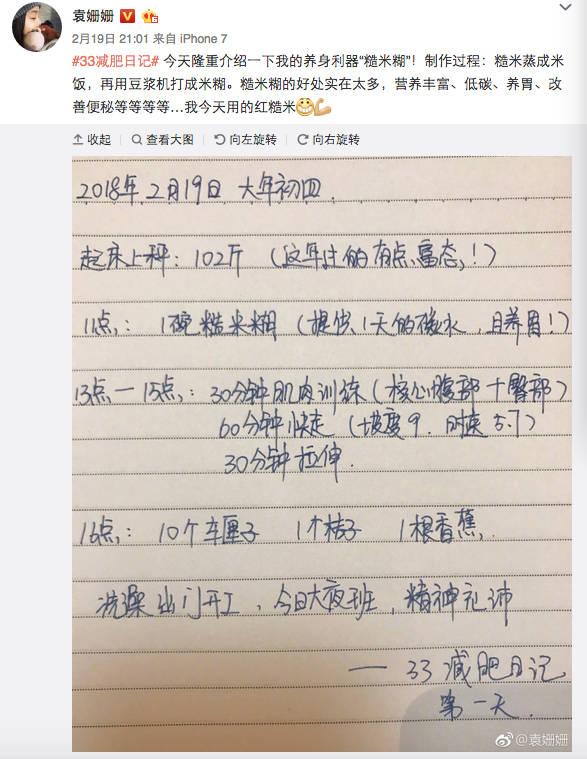 袁姗姗
2月19日 21:01 来自 iPhone 7
#33减肥日记# 今天隆重介绍一下我的养身利器“糙米糊”！制作过程：糙米蒸成米
饭，再用豆浆机打成米糊。糙米糊的好处实在太多，营养丰富、低碳、养胃、改
善便秘等等等等…我今天用的红糙米
收起 查看大图 向左旋转 向右旋转
2018年.2月19日 大年初四.
起床上秤：102斤（这年过的有点富态！）
11点：1碗糙米糊（提供1天的碳水，且养胃！）
13点一15点：30分钟肌肉训练（核心腹部+臀部）
60分钟快走（坡度9.时速5.7）
30分钟拉伸.
16点：10个车厘子 1个桔子 1根香蕉.
洗澡出门开工、今日大夜班，精神充沛
—— 33减肥日记
第一天.
@袁姗姗